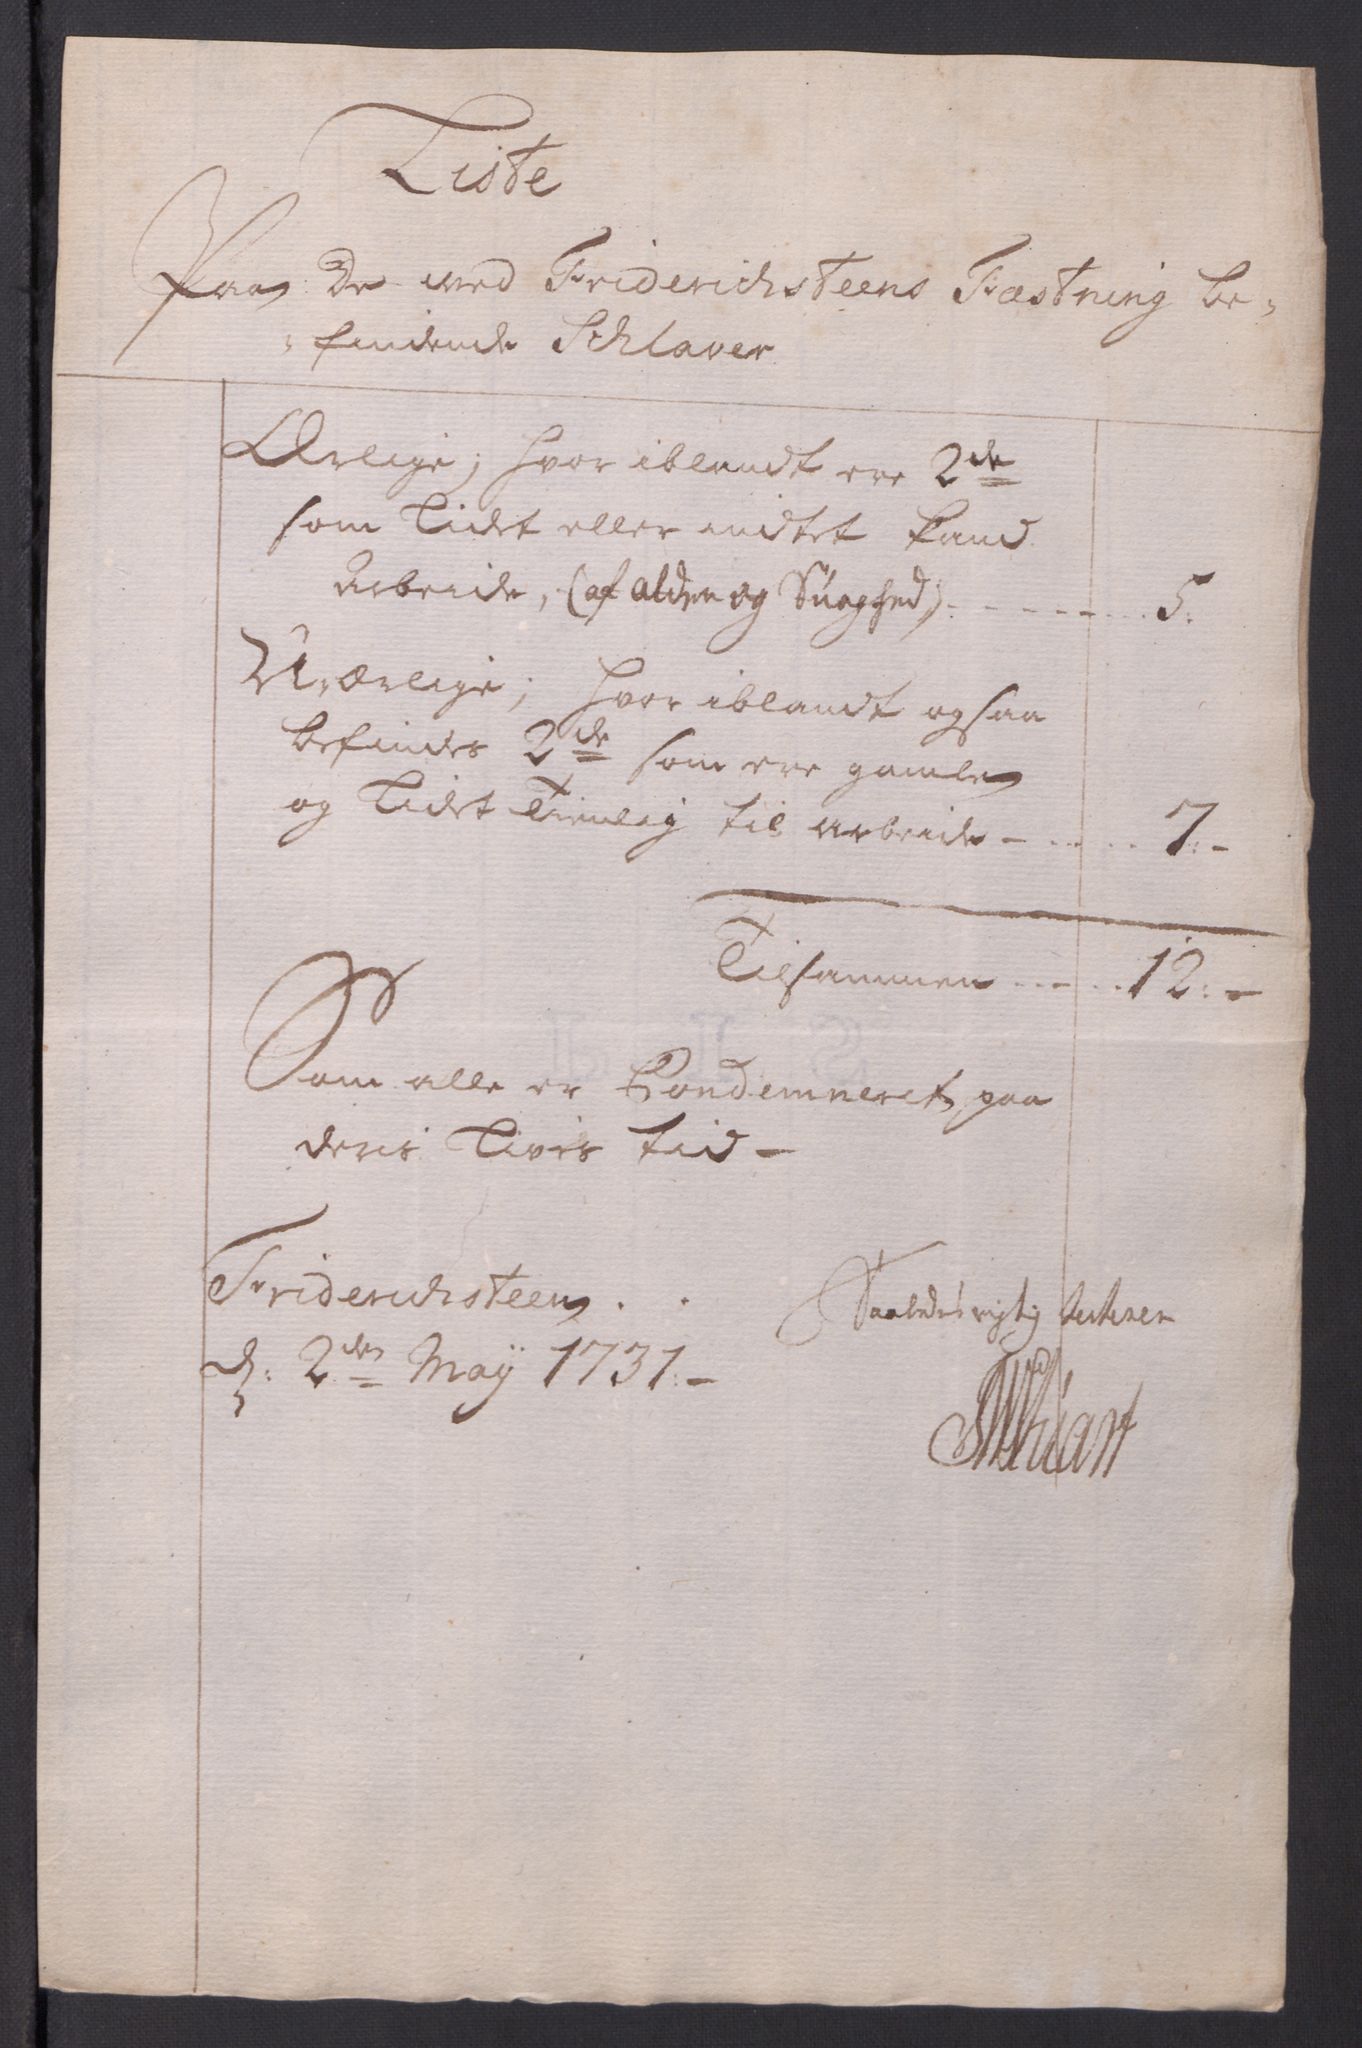 Liste
Paa De ved Friderichsteens Fæstning be-
findende Schlaver
Ærlige; hvor iblandt ere 2de
som lidet eller indtet kand
Arbeide, (af alder og Suaghed) 5.
U-ærlige; hvor iblandt ogsaa
befindes 2de som ere gamle
og lidet Tienlig til arbeide - 7:-
Tilsammen 12:-
Som alle er Condemneret paa
deris Livs tid -
Friderichsteen
d: 2den Maÿ 1731:-
Saaledes rigtig